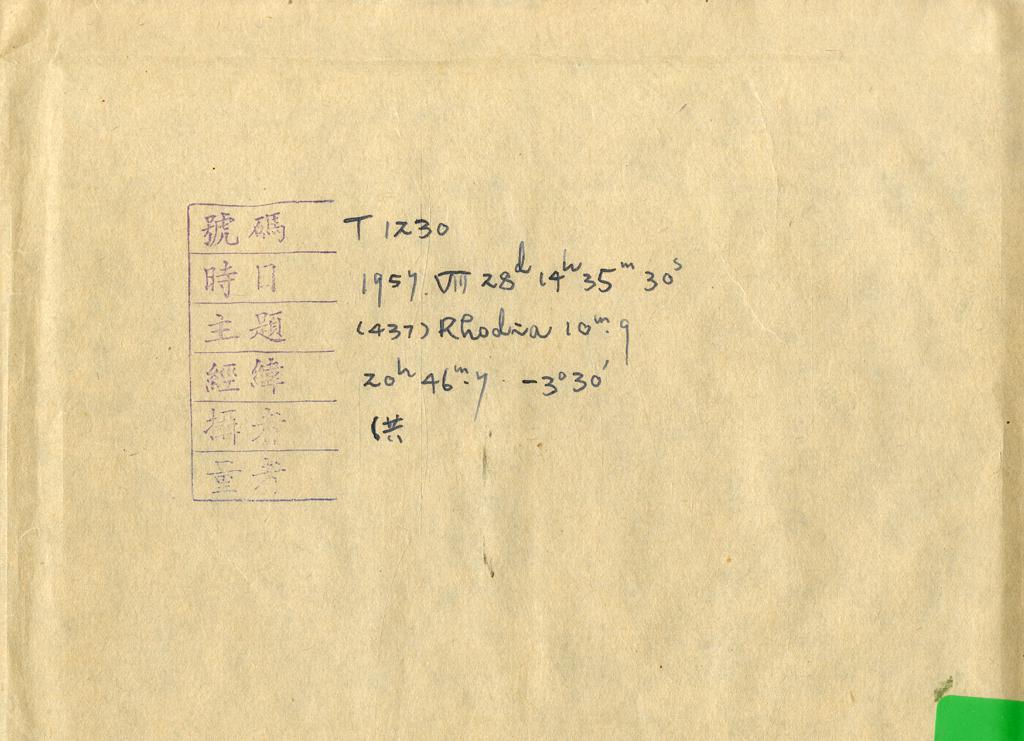 號碼 T 1230
時日 1957. VII 28ᵈ 14ʰ 35ᵐ 30ˢ
主題 (437) Rhodia 10ᵐ.9
經緯 20ʰ 46ᵐ.7 -3°30′
攝者 洪
重考